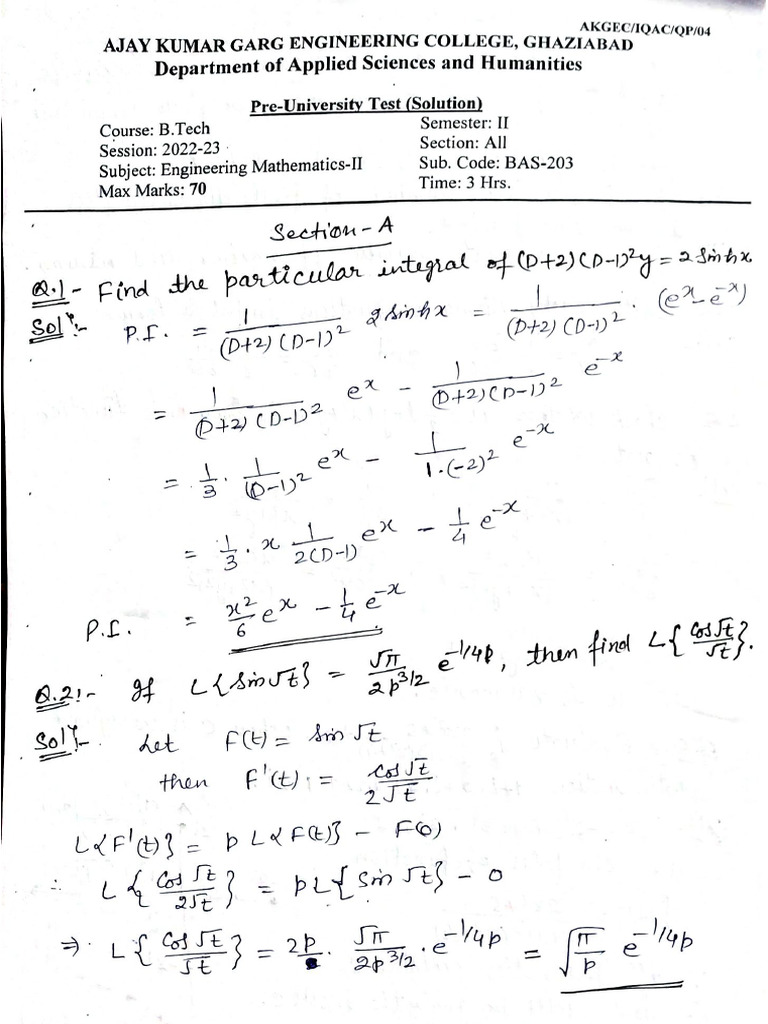 AKGEC/IQAC/QP/04
AJAY KUMAR GARG ENGINEERING COLLEGE, GHAZIABAD
Department of Applied Sciences and Humanities
Pre-University Test (Solution)
Course: B.Tech Semester: II
Session: 2022-23 Section: All
Subject: Engineering Mathematics-II Sub. Code: BAS-203
Max Marks: 70 Time: 3 Hrs.
Section-A
Q.1- Find the particular integral of (D+2)(D-1)²y = 2 Sinhx.
Solⁿ:- P.I. = 1/((D+2)(D-1)²) 2 sinhx = 1/((D+2)(D-1)²) . (eˣ-e⁻ˣ)
= 1/((D+2)(D-1)²) eˣ - 1/((D+2)(D-1)²) e⁻ˣ
= 1/3 . 1/(D-1)² eˣ - 1/(1.(-2)²) e⁻ˣ
= 1/3 . x 1/(2(D-1)) eˣ - 1/4 e⁻ˣ
P.I. = x²/6 eˣ - 1/4 e⁻ˣ
Q.2:- If L{sin√t} = √π/(2p^3/2) e^-1/4p, then find L{cos√t/√t}.
Solⁿ:- Let F(t) = sin √t
then F'(t) = cos √t/(2√t)
L{F'(t)} = p L{F(t)} - F(0)
∴ L{cos √t/(2√t)} = pL{sin √t} - 0
⇒ L{cos √t/√t} = 2p . √π/(2p^3/2) . e^-1/4p = √(π/p) e^-1/4p